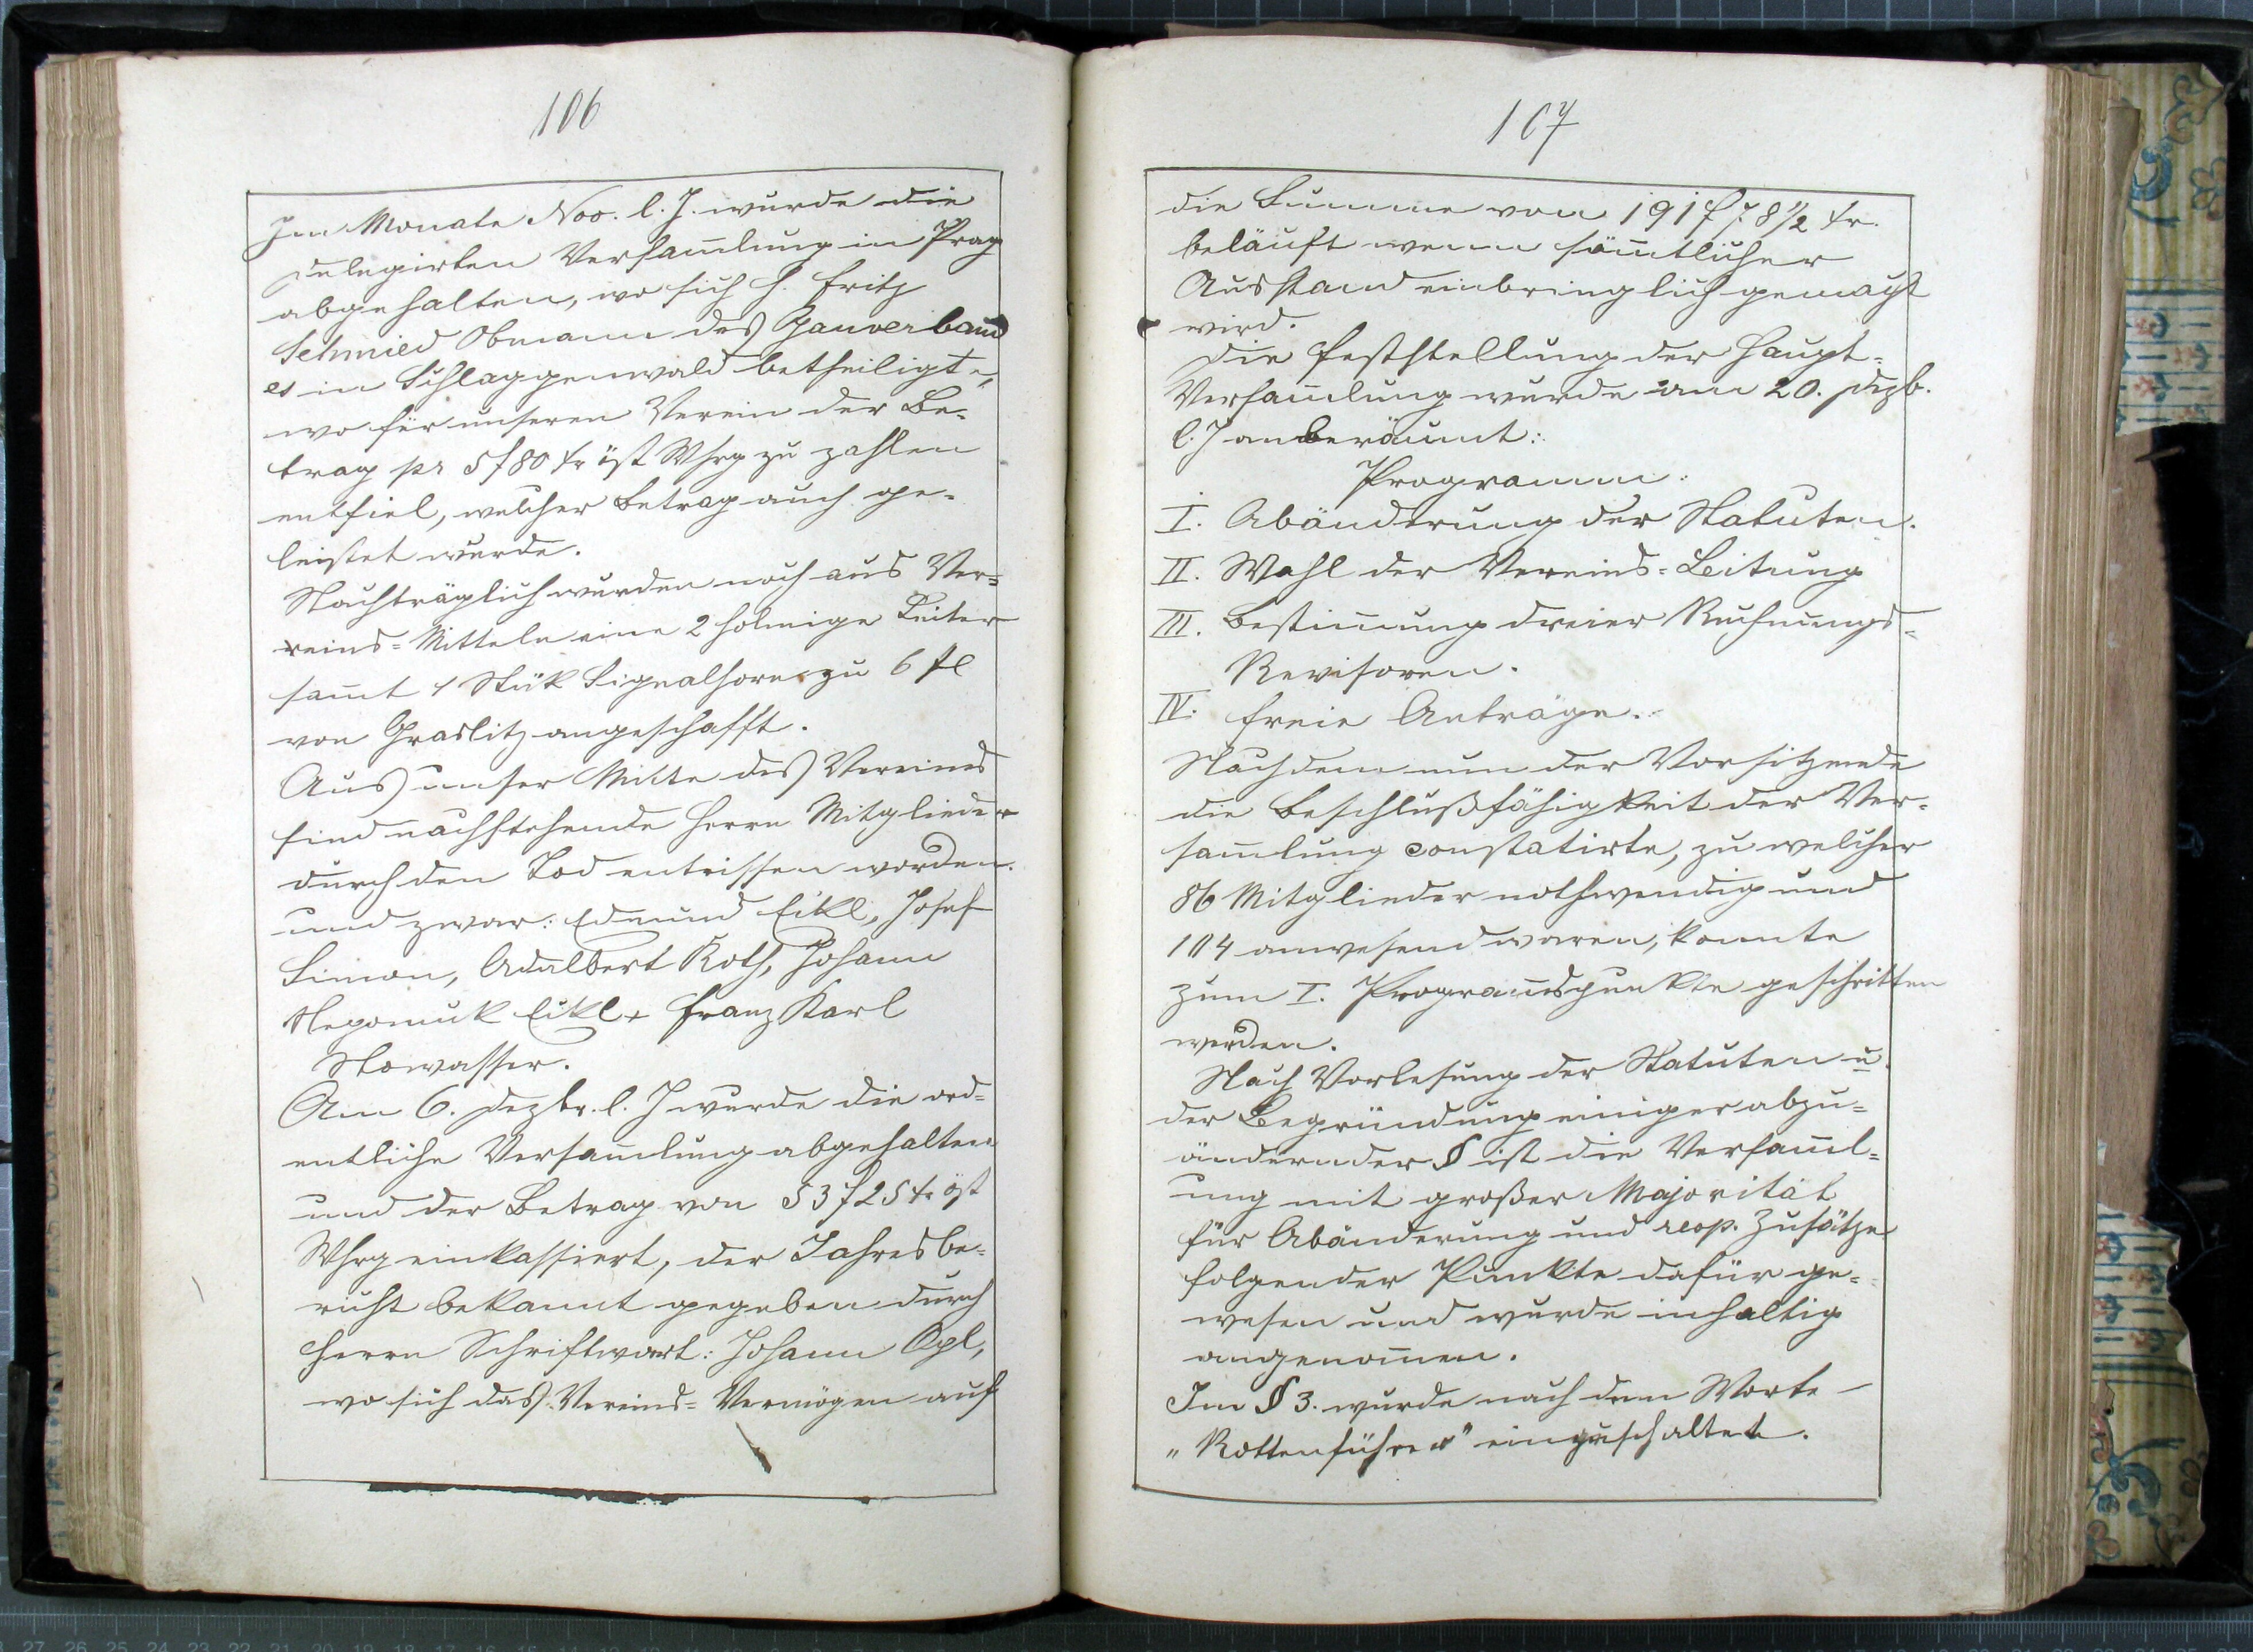 106
Im Monate Nov. l. J. wurde die
Delegirten Versam̄lung in Prag
abgehalten, wo sich H. Fritz
Schmied Obmann des Gauverband
es in Schlaggenwald betheiligte,
wo für unseren Verein der Be-
trag pr 5 f 80 kr öst Whrg zu zahlen
entfiel, welcher Betrag auch ge-
leistet wurde.
Nachträglich wurden noch aus Ver=
reins=Mitteln eine 2 holmige Leiter
sam̄t 1 Stük Signalhorn zu 6 fl
von Graslitz angeschafft.
Aus unser Mitte des Vereines
sind nachstehende Herrn Mitglieder
durch den Tod entrissen worden.
und zwar: Edmund Eikl, Josef
Simon, Adalbert Roth, Johann
Nepomuk Eikl + Franz Karl
Stowasser.
Am 6. Dezbr. l. J wurde die ord=
entliche Versam̄lung abgehalten
und der Betrag von 53 f 25 kr öst
Whrg einkassiert, der Jahresbe=
richt bekannt gegeben durch
Herrn Schriftwart: Johann Opl,
wo sich das Vereins=Vermögen auf
107
die Summe von 191 f 78 1/2 kr.
beläuft wenn säm̄tlicher
Ausstand einbringlich gemacht
wird.
Die Feststellung der Haupt=
Versam̄lung wurde am 20. Dezb.
l. J anberaumt:
Programm:
I. Abänderung der Statuten.
II. Wahl der Vereins=Leitung
III. Bestim̄ung dreier Rechnungs=
Revisoren.
IV. Freie Anträge.
Nachdem nun der Vorsitzende
die Beschlußfähigkeit der Ver=
sam̄lung constatirte, zu welcher
86 Mitglieder nothwendig und
104 anwesend waren, konnte
zum I. Program̄spunkte geschritten
werden.
Nach Vorlesung der Statuten u
der Begründung einiger abzu=
ändernder § ist die Versam̄l=
ung mit großer Majorität
für Abänderung und resp. Zusätze
folgender Punkte dafür ge=
wesen und wurde inhaltig
angenom̄en.
Im § 3. wurde nach dem Worte —
„Rottenführer" eingeschaltet.